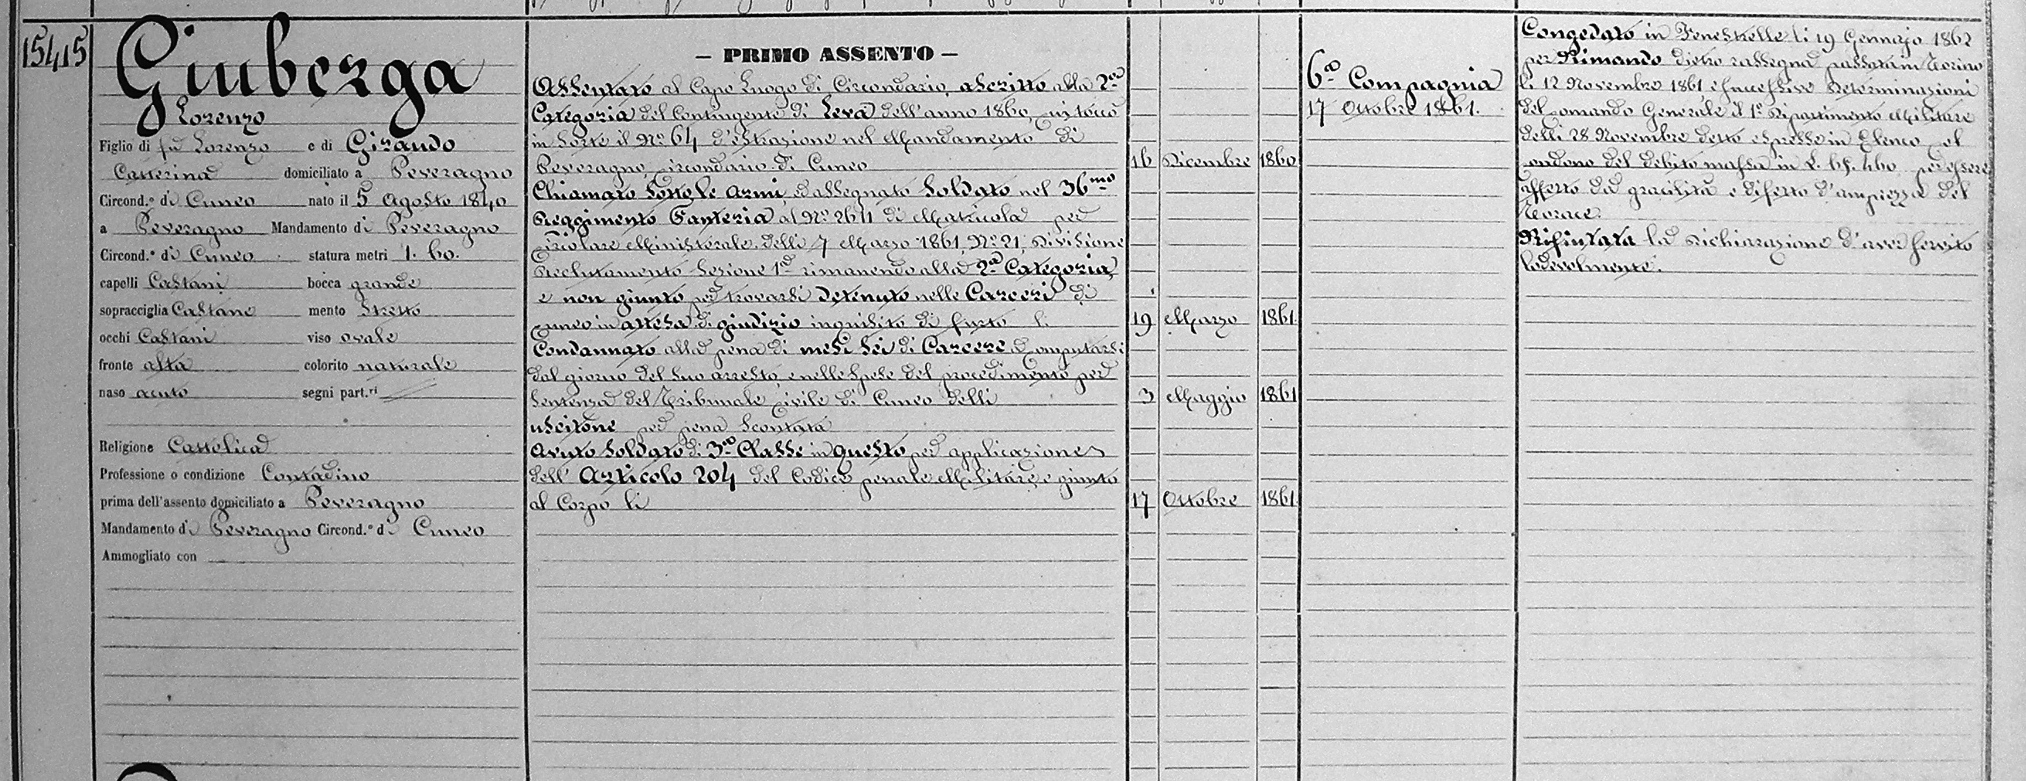 15415
Giuberga
Lorenzo
Figlio di fu Lorenzo e di Giraudo
Catterina domiciliato a Peveragno
Circond.º di Cuneo nato il 5 Agosto 1840
a Peveragno Mandamento di Peveragno
Circond.º di Cuneo statura metri 1. 60.
capelli Castani bocca grande
sopracciglia Castane mento stretto
occhi Castani viso ovale
fronte alta colorito naturale
naso acuto segni part.ri
Religione Cattolica
Professione o condizione Contadino
prima dell'assento domiciliato a Peveragno
Mandamento di Peveragno Circond.º di Cuneo
Ammogliato con
– PRIMO ASSENTO –
Assentato al Capo Luogo di Circondario, ascritto alla 2ª
Categoria del Contingente di Leva dell'anno 1860, cui toccò
in sorte il Nº 64 d'estrazione nel Mandamento di
Peveragno, circondario di Cuneo 16 Dicembre 1860
Chiamato sotto le armi, ed assegnato Soldato nel 36mo
Reggimento Fanteria al Nº 2611 di Matricola per
circolare Ministeriale delli 7 Marzo 1861, Nº 21, Divisione
Reclutamento Sezione 1ª rimanendo alla 2ª Categoria,
e non giunto per trovarsi detenuto nelle Carceri di
Cuneo in attesa di giudizio inquisito di furto li 19 Marzo 1861
Condannato alla pena di mesi sei di Carcere computarsi
dal giorno del suo arresto, e nelle spese del procedimento per
sentenza del Tribunale civile di Cuneo delli 3 Maggio 1861
uscitone per pena scontata
Avuto soldato di 3ª Classe in questo per applicazione
dell' Articolo 204 del Codice penale Militare e giunto
al Corpo li 17 Ottobre 1861
6ª Compagnia
17 Ottobre 1861.
Congedato in Fenestrelle li 19 Gennajo 1862
per Rimando dietro rassegna passata in Torino
li 12 Novembre 1861 e successive Determinazioni
del comando Generale il 1º Dipartimento Militare
delli 28 Novembre detto espresse in Elenco col
condono del debito massa in L. 460 per essere
affetto da gracilità e difetto d'ampiezza del
torace.
Rifiutata la Dichiarazione d'aver servito
lodevolmente.